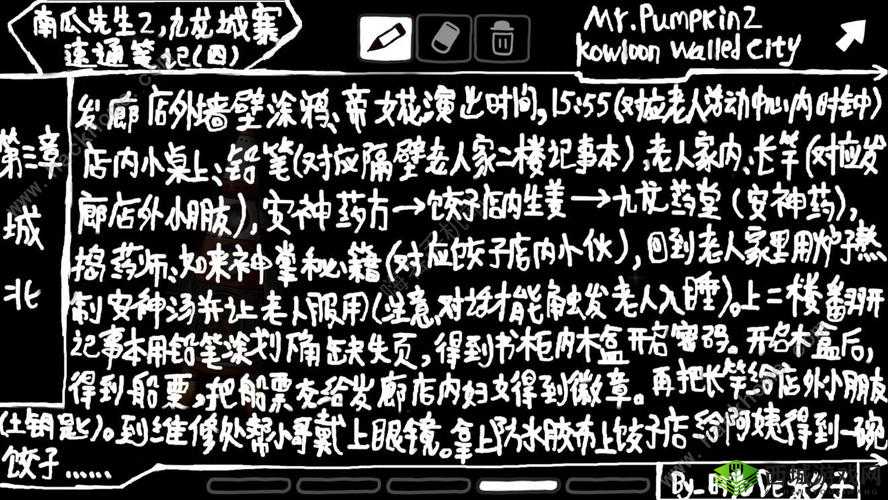 南瓜先生2,九龙城寨
速通笔记(四)
Mr.Pumpkin2
Kowloon Walled City
第三章
城
北
发廊店外墙壁涂鸦、帝女花演出时间,15:55(对应老人活动中心内时钟)
店内小桌上、铅笔(对应隔壁老人家二楼记事本)、老人家内、长竿(对应发
廊店外小朋友),安神药方→饺子店内生姜→九龙药堂(安神药),
捣药师、如来神掌秘籍(对应饺子店内小伙),回到老人家里用炉子熬
制安神汤并让老人服用(注意、对话才能触发老人入睡)。上二楼翻开
记事本用铅笔涂划确缺失页,得到书柜内木盒开启密码。开启木盒后,
得到船票,把船票交给发廊店内妇女得到徽章。再把长竿给店外小朋友
(土钥匙)。到维修处帮小哥戴上眼镜。拿上防水胶布上饺子店给阿姨得到一碗
饺子……
By